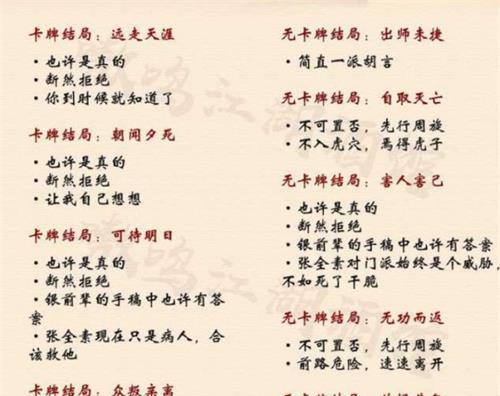 卡牌结局：远走天涯
·也许是真的
·断然拒绝
·你到时候就知道了
卡牌结局：朝闻夕死
·也许是真的
·断然拒绝
·让我自己想想
卡牌结局：可待明日
·也许是真的
·断然拒绝
·银前辈的手稿中也许有答
案
·张全素现在只是病人，合
该救他
卡牌结局：众叛亲离
无卡牌结局：出师未捷
·简直一派胡言
无卡牌结局：自取灭亡
·不可置否，先行周旋
·不入虎穴，焉得虎子
无卡牌结局：害人害己
·也许是真的
·断然拒绝
·银前辈的手稿中也许有答案
·张全素对门派始终是个威胁，
不如死了干脆
无卡牌结局：无功而返
·不可置否，先行周旋
·前路危险，速速离开